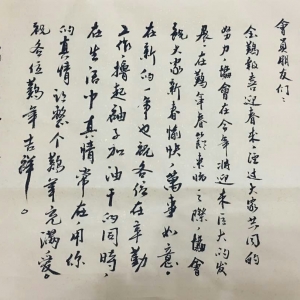 會員朋友们：
金鷄報喜迎春来，经过大家共同的
努力，協會在今年将迎来巨大的发
展。在鷄年春節来临之際，協會
祝大家新春愉快，萬事如意。
在新的一年也祝各位在辛勤
工作擼起袖子加油干的同時，
在生活中真情常在，用你
的真情让整个鷄年充满爱。
祝各位鷄年吉祥。